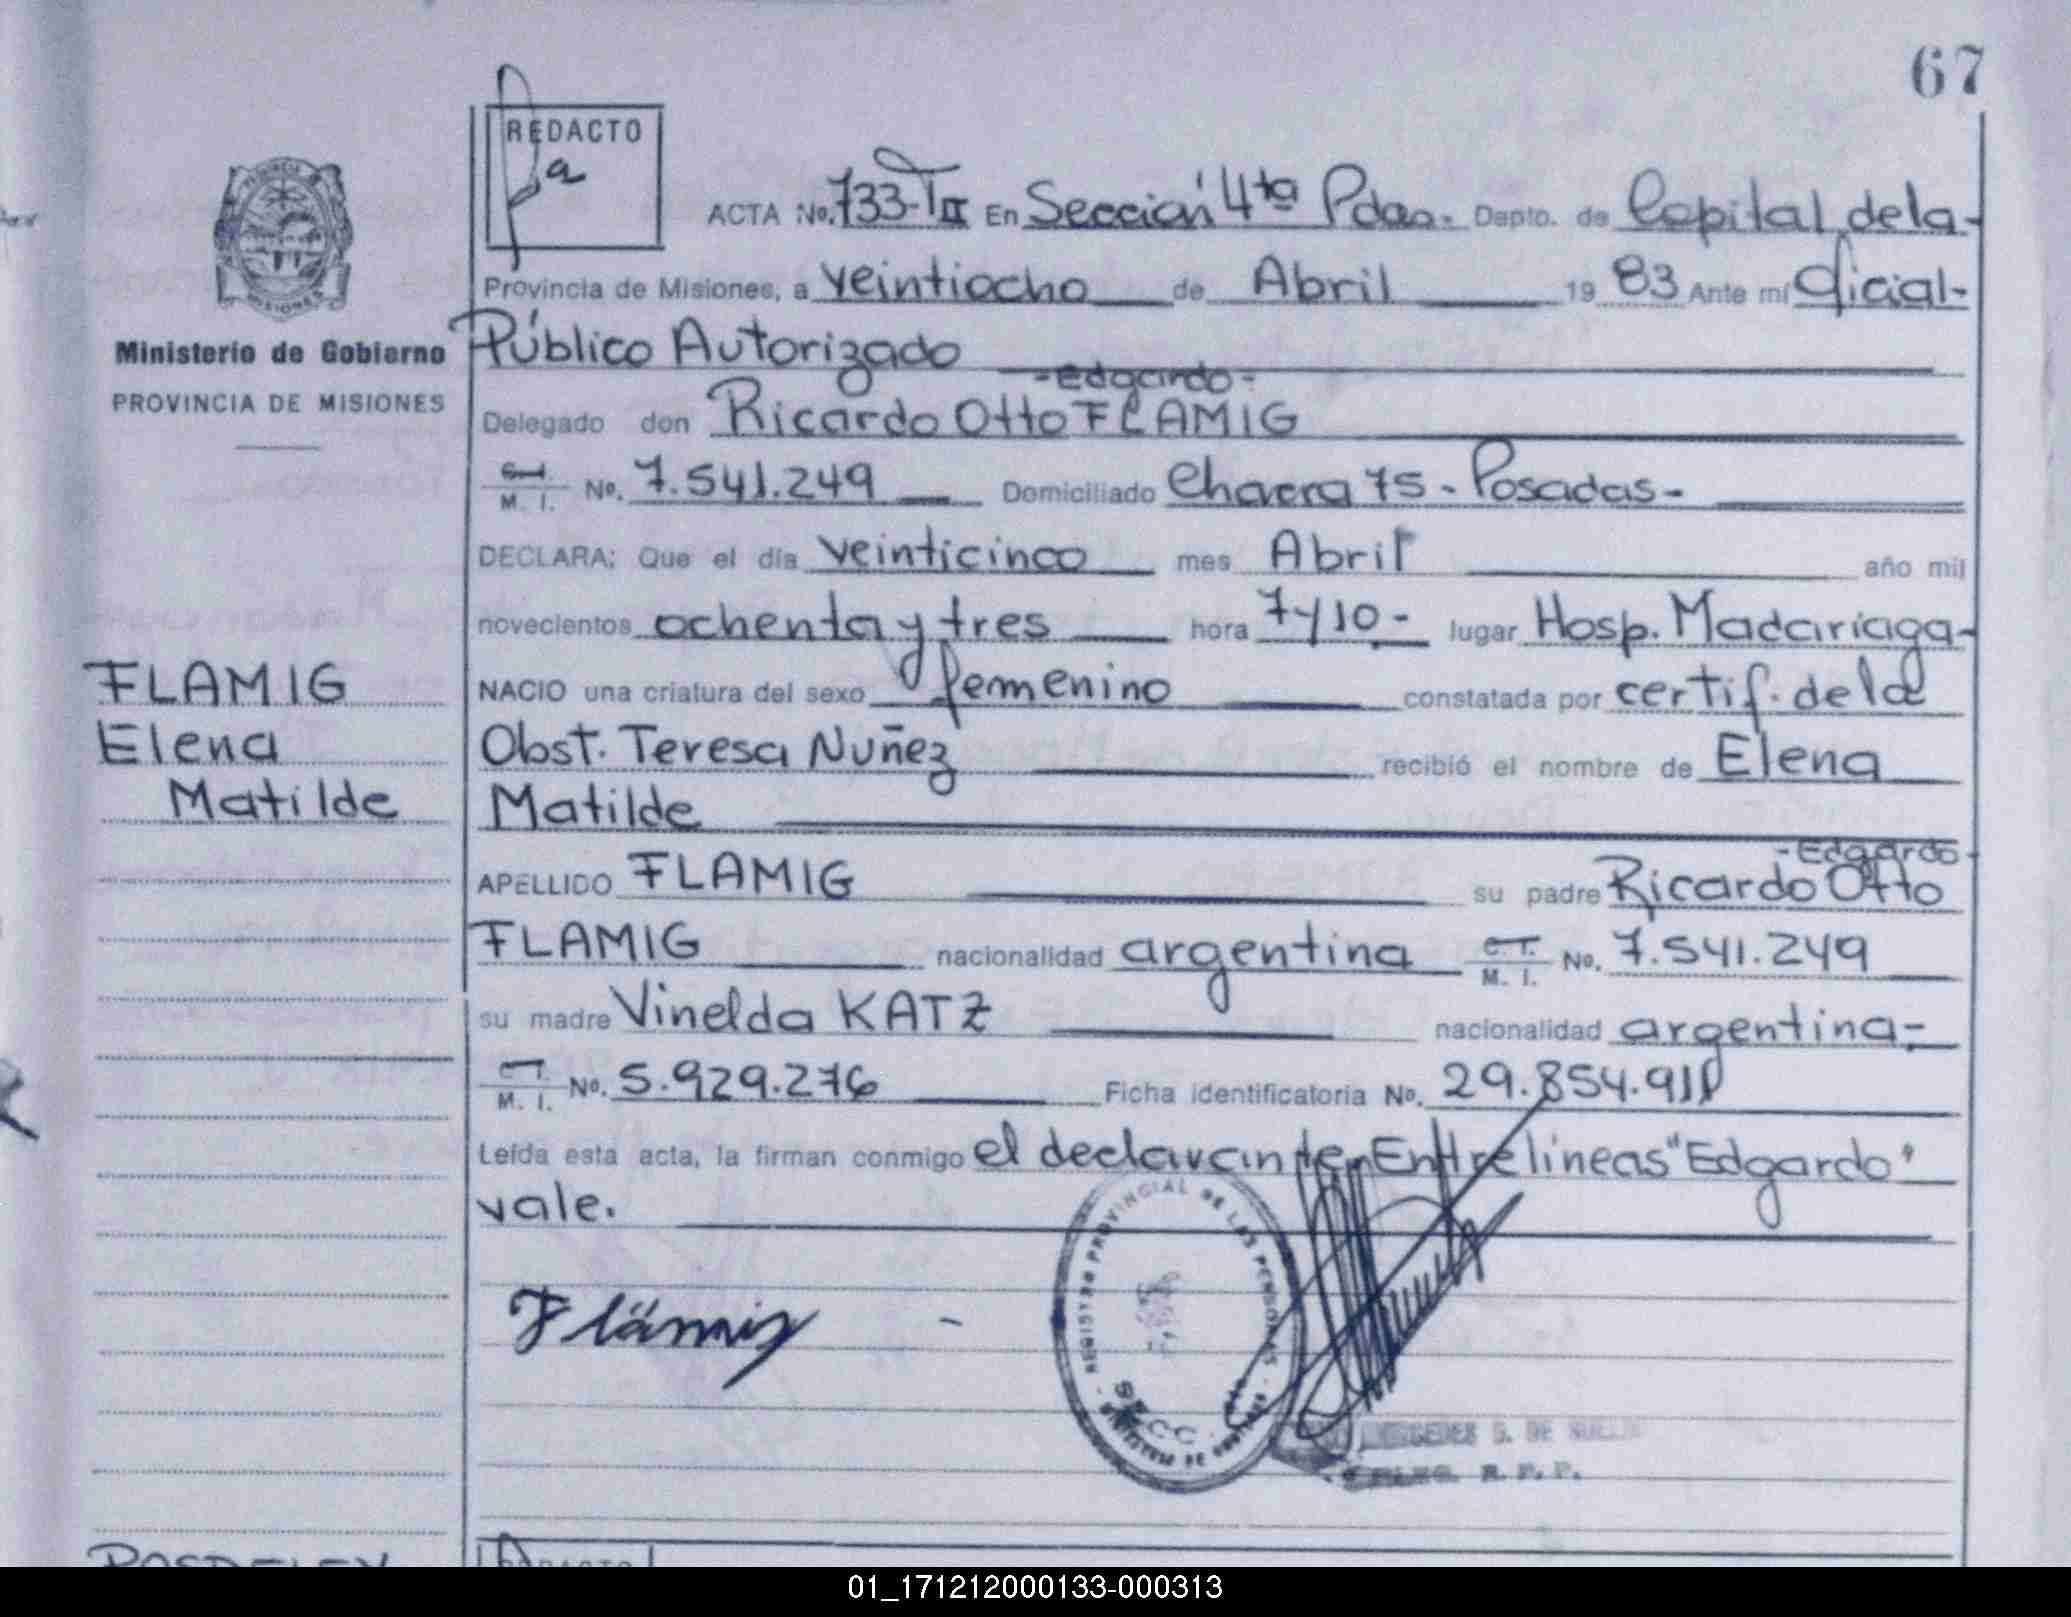 67
REDACTO
ACTA No. 733-TII En Sección 4ta Pdas. Depto. de Capital, de la-
Provincia de Misiones, a veintiocho de Abril 1983 Ante mí Oficial-
Ministerio de Gobierno
PROVINCIA DE MISIONES
Público Autorizado
-Edgardo-
Delegado don Ricardo Otto FLAMIG
M. I. No. 7.541.249 Domiciliado Chacra 75 - Posadas-
DECLARA: Que el día veinticinco mes Abril año mil
novecientos ochenta y tres hora 7 y 10- lugar Hosp. Madariaga-
FLAMIG
Elena
Matilde
NACIO una criatura del sexo femenino constatada por certif. de la
Obst. Teresa Nuñez recibió el nombre de Elena
Matilde
-Edgardo-
APELLIDO FLAMIG su padre Ricardo Otto
FLAMIG nacionalidad argentina C.I. M. I. No. 7.541.249
su madre Vinelda KATZ nacionalidad argentina-
C.I. M. I. No. 5.929.276 Ficha identificatoria No. 29.854.911
Leída esta acta, la firman conmigo el declarante. Entrelineas "Edgardo"
vale.
Flämig
REGISTRO PROVINCIAL DE LAS PERSONAS
SECC.
REDACTO
01_171212000133-000313